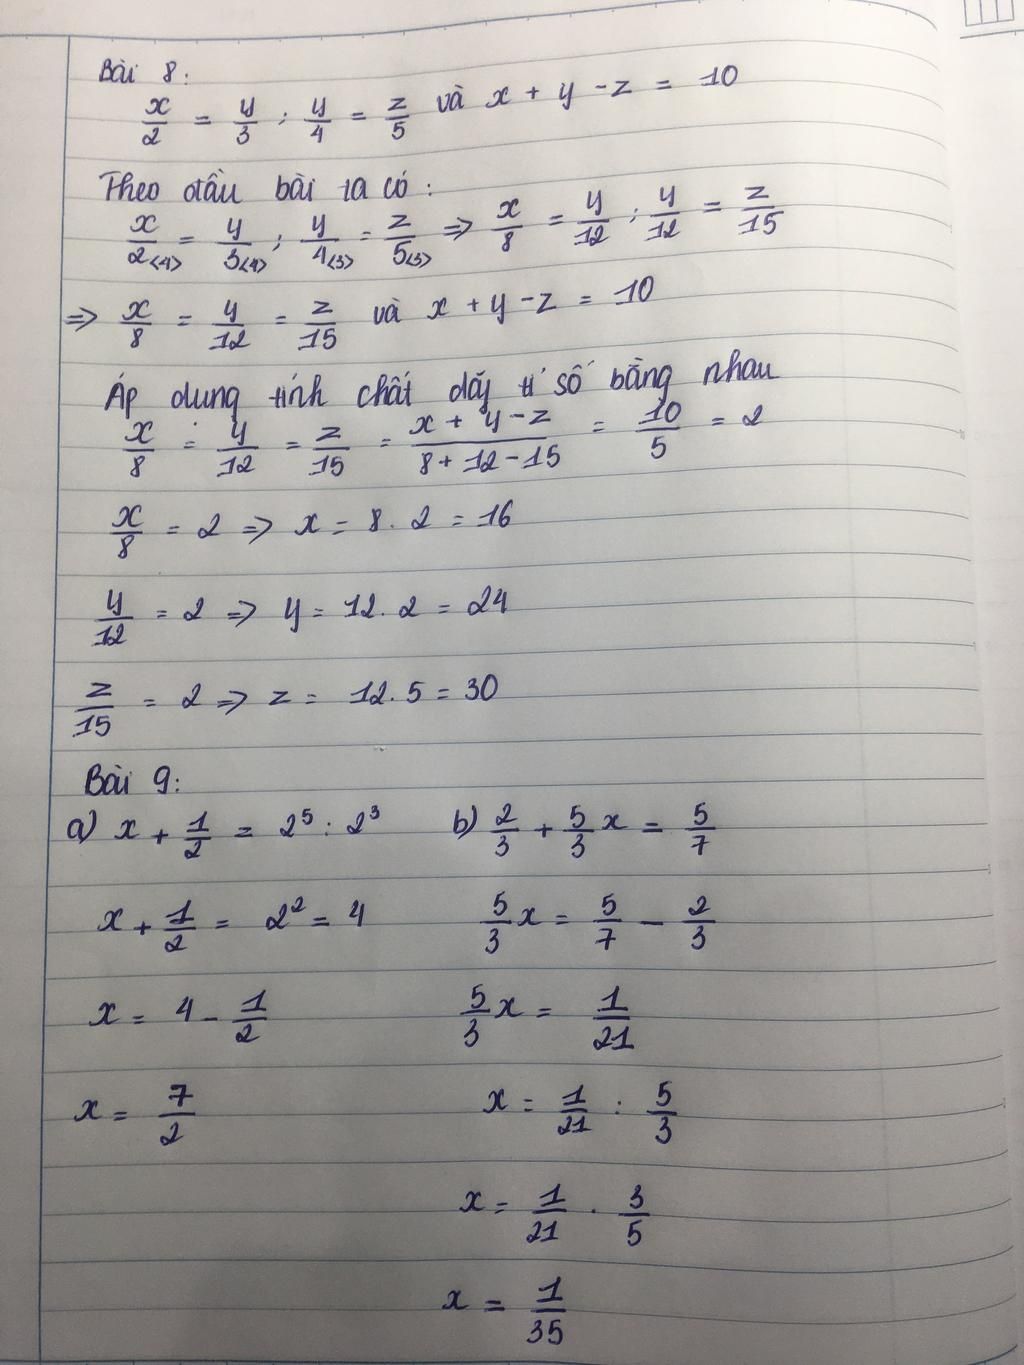 Bài 8:
x/2 = y/3 ; y/4 = z/5 và x + y - z = 10
Theo đầu bài ta có:
x/2<4> = y/3<4> ; y/4<3> = z/5<3> => x/8 = y/12 ; y/12 = z/15
=> x/8 = y/12 = z/15 và x + y - z = 10
Áp dung tính chất dãy tỉ số bằng nhau
x/8 = y/12 = z/15 = (x + y - z)/(8 + 12 - 15) = 10/5 = 2
x/8 = 2 => x = 8 . 2 = 16
y/12 = 2 => y = 12 . 2 = 24
z/15 = 2 => z = 12 . 5 = 30
Bài 9:
a) x + 1/2 = 2⁵ : 2³ b) 2/3 + 5/3 x = 5/7
x + 1/2 = 2² = 4 5/3 x = 5/7 - 2/3
x = 4 - 1/2 5/3 x = 1/21
x = 7/2 x = 1/21 : 5/3
x = 1/21 . 3/5
x = 1/35